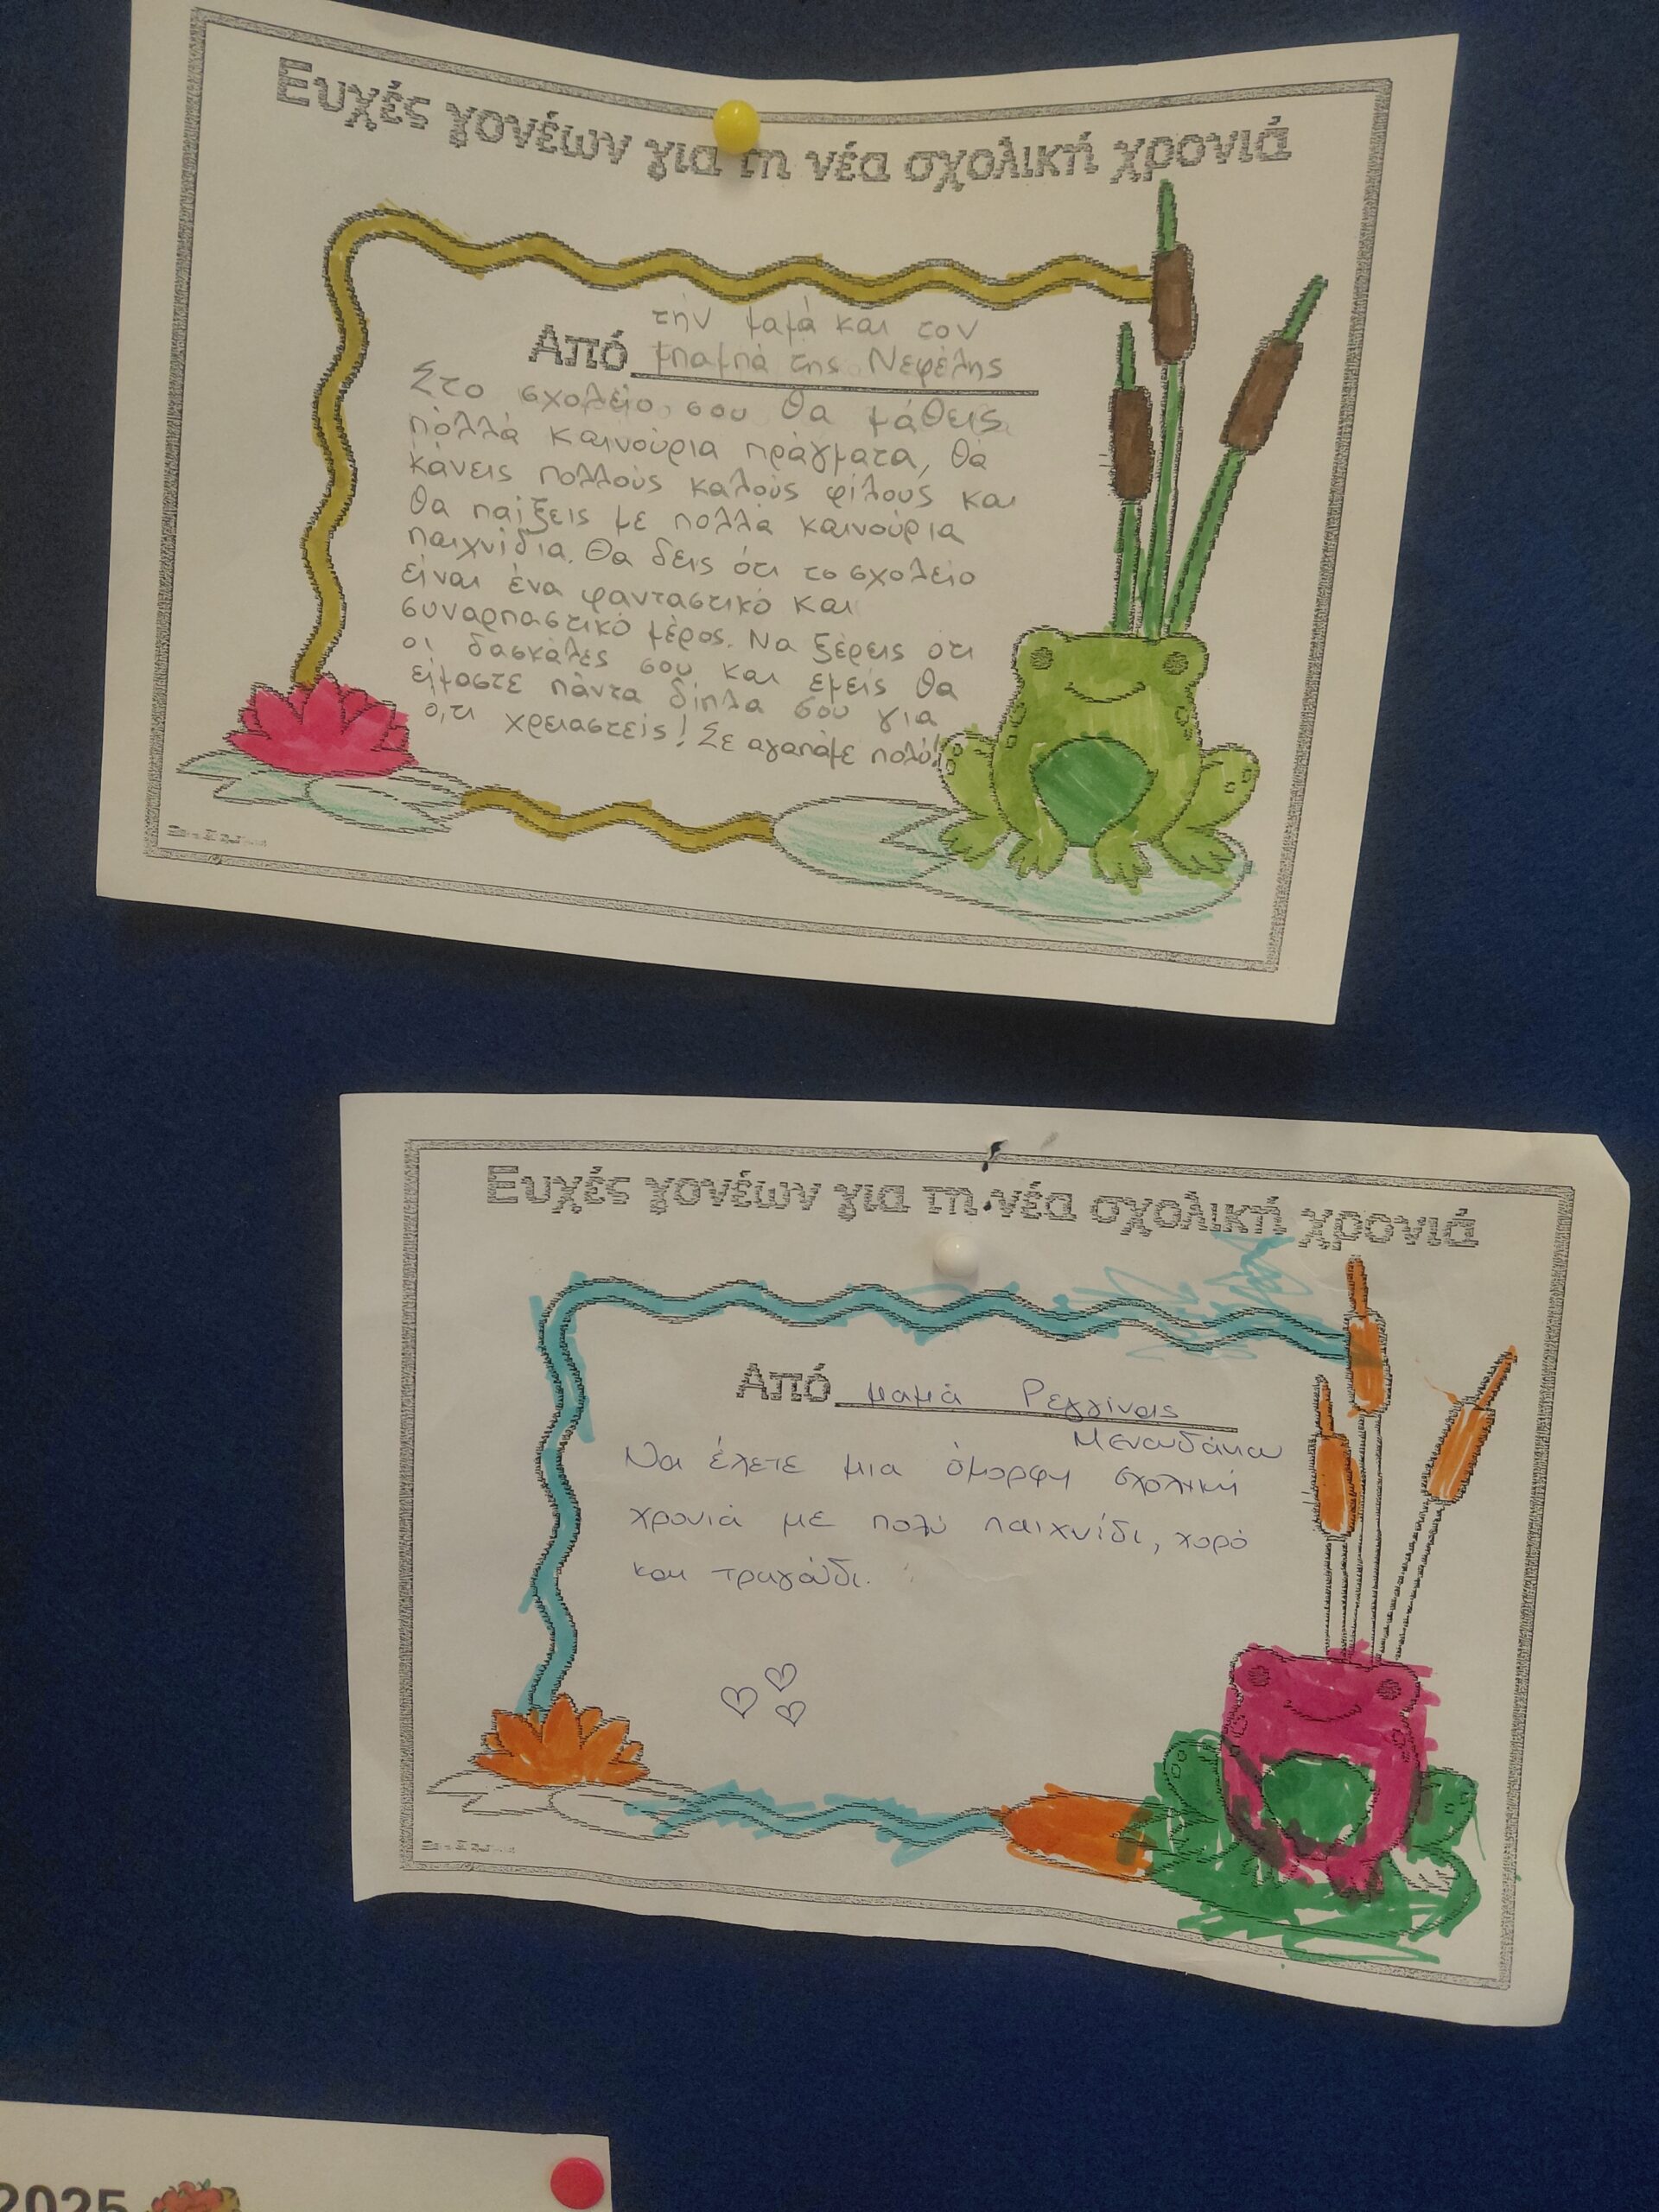 Ευχές γονέων για τη νέα σχολική χρονιά
την μαμά και τον
Από μπαμπά της Νεφέλης
Στο σχολείο σου θα μάθεις
πολλά καινούρια πράγματα, θα
κάνεις πολλούς καλούς φίλους και
θα παίξεις με πολλά καινούρια
παιχνίδια. Θα δεις ότι το σχολείο
είναι ένα φανταστικό και
συναρπαστικό μέρος. Να ξέρεις ότι
οι δασκάλες σου και εμείς θα
είμαστε πάντα δίπλα σου για
ο,τι χρειαστείς! Σε αγαπάμε πολύ!
Ευχές γονέων για τη νέα σχολική χρονιά
Από μαμά Ρεγγίνας
Να έχετε μια όμορφη σχολική
χρονιά με πολύ παιχνίδι, χορό
και τραγούδι.
2025